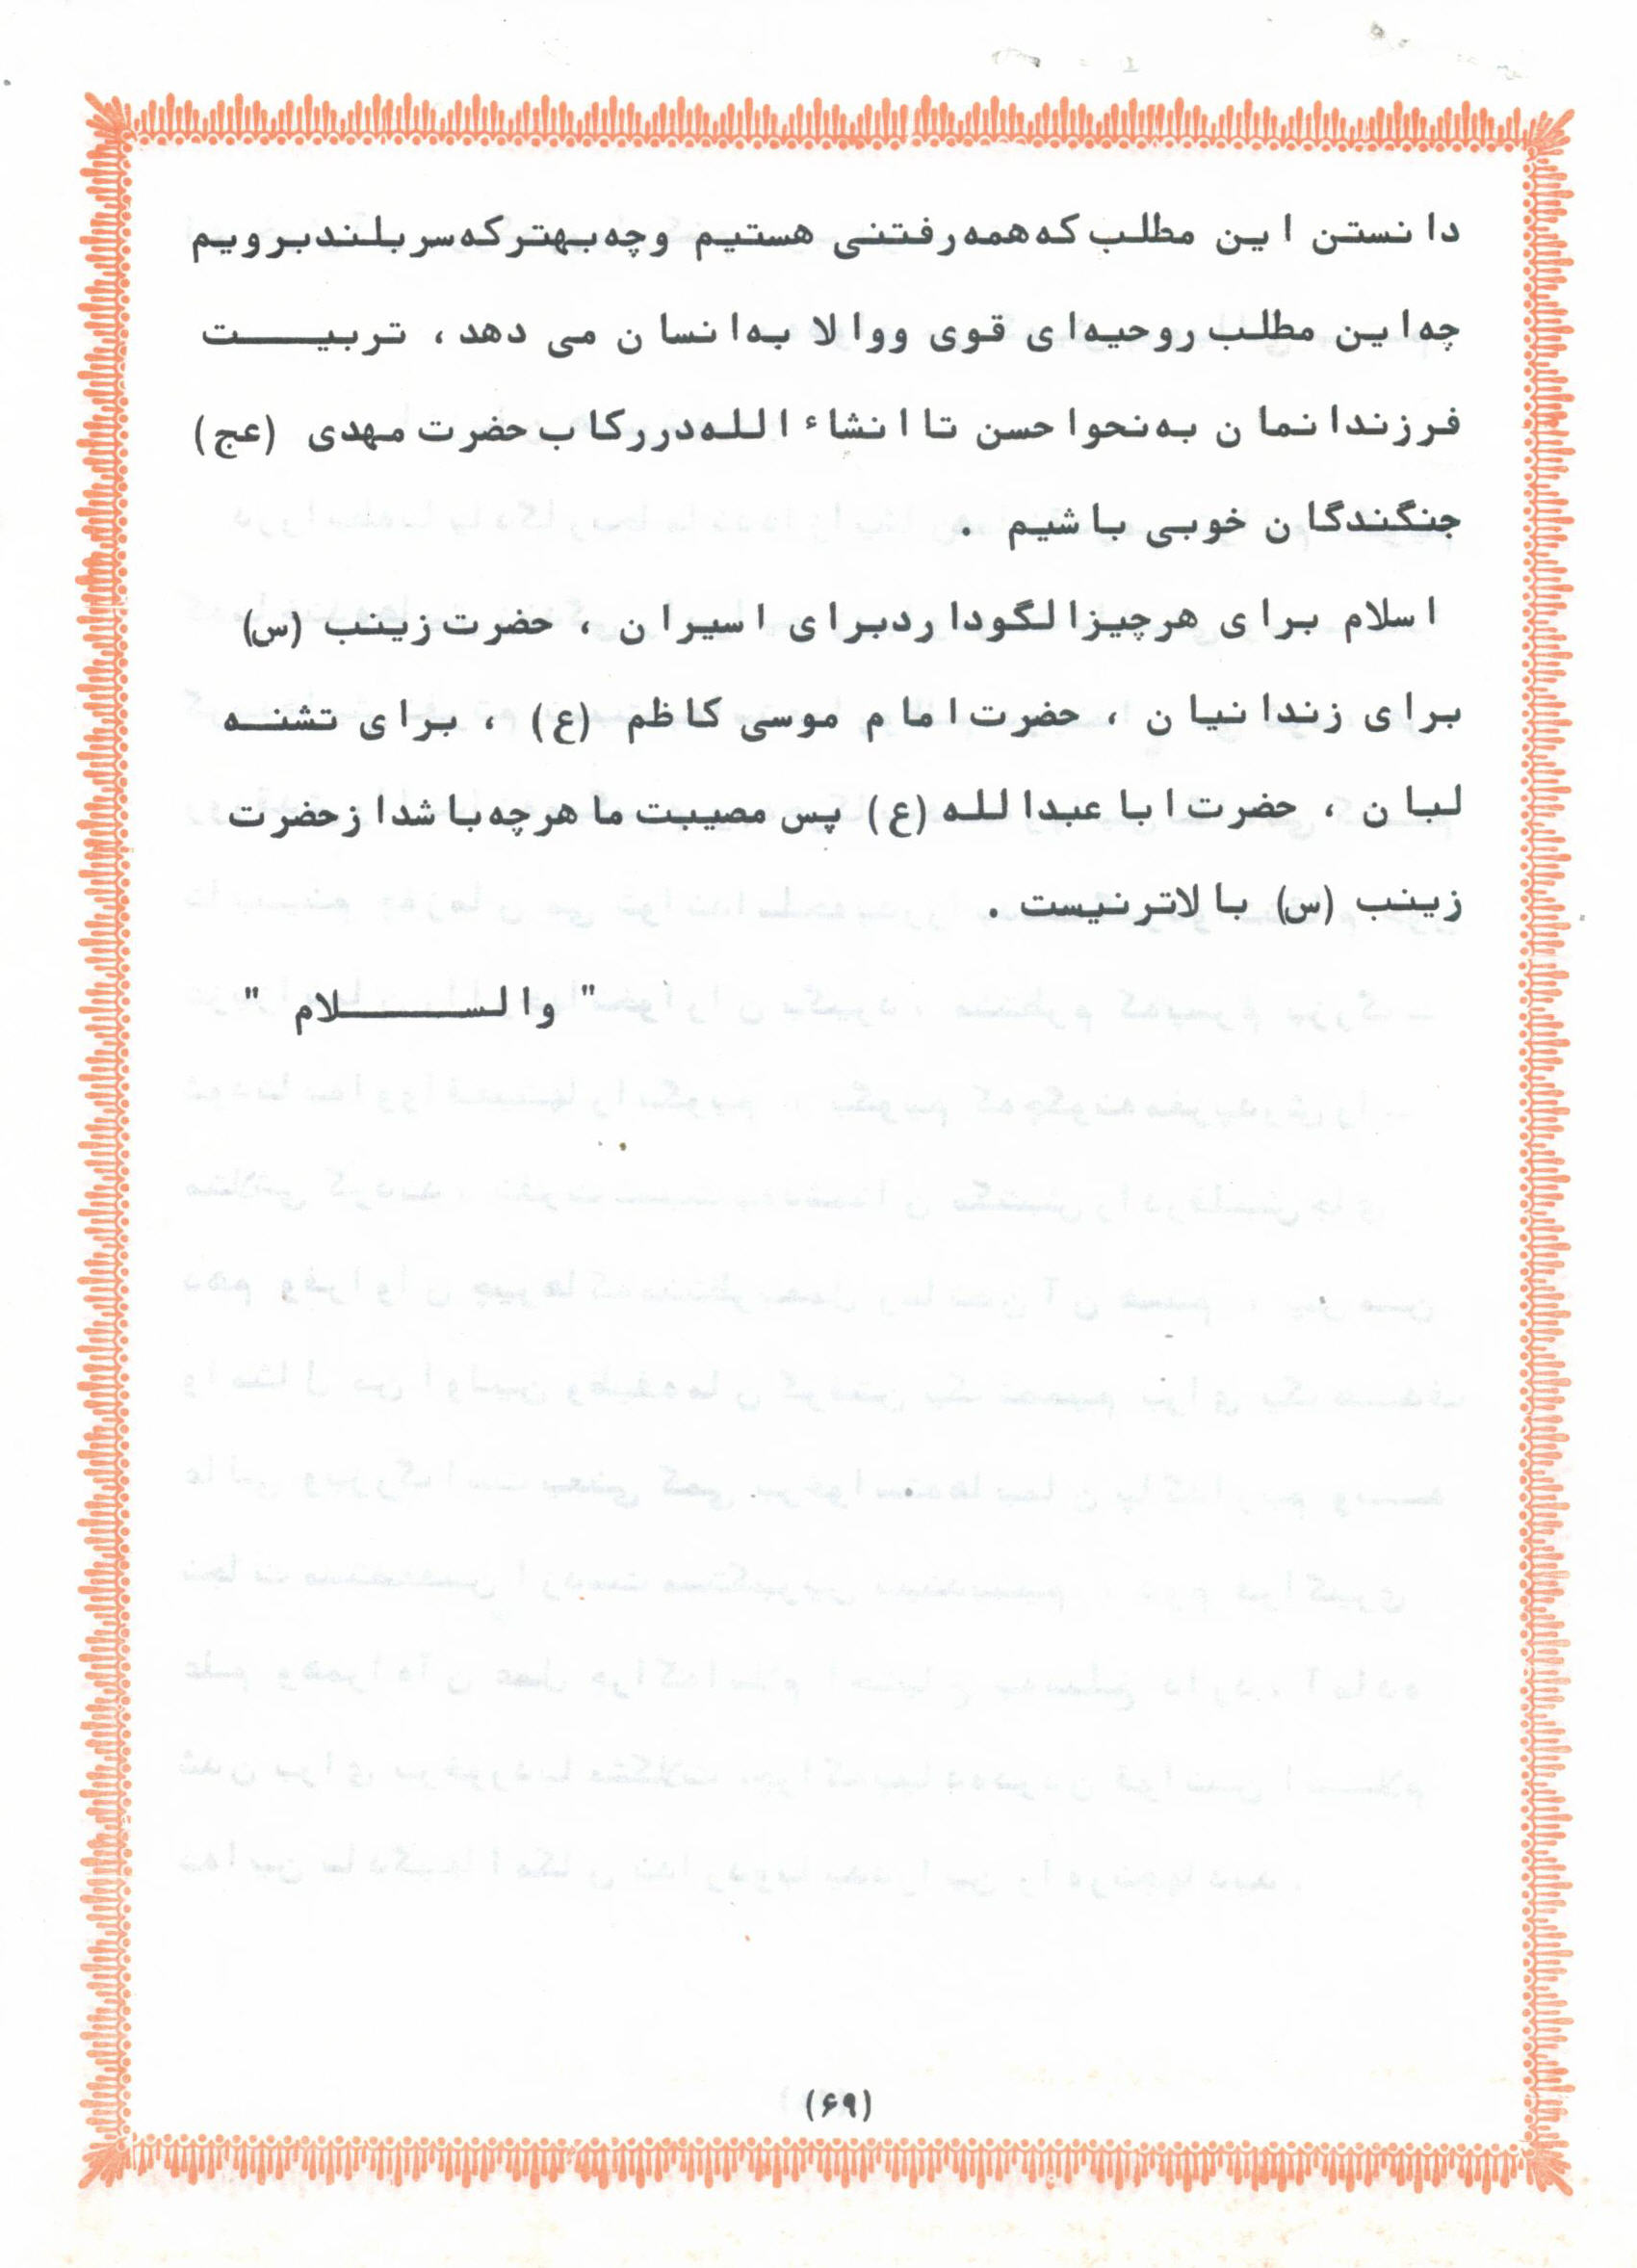 دانستن این مطلب که همه رفتنی هستیم و چه بهتر که سربلند برویم
چه این مطلب روحیه‌ای قوی و والا به انسان می دهد، تربیت
فرزندانمان به نحو احسن تا انشاء الله در رکاب حضرت مهدی (عج)
جنگندگان خوبی باشیم .
اسلام برای هر چیز الگو دارد برای اسیران ، حضرت زینب (س)
برای زندانیان ، حضرت امام موسی کاظم (ع) ، برای تشنه
لبان ، حضرت ابا عبدالله (ع) پس مصیبت ما هر چه باشد از حضرت
زینب (س) بالاتر نیست .
" والسلام "
(۶۹)